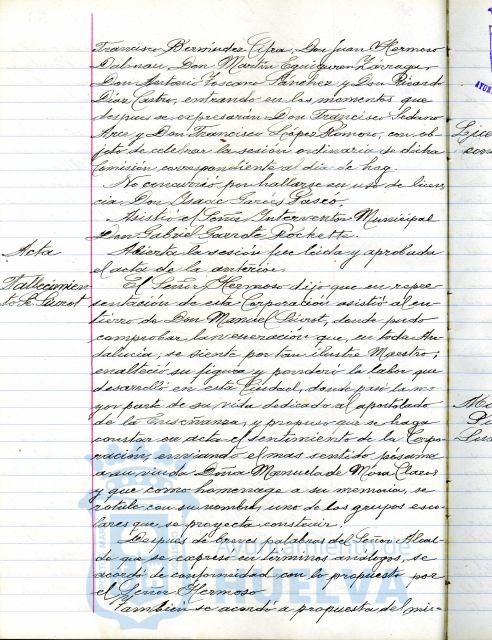 Francisco Bermúdez Afra, Don Juan Hermoso
Dalmau, Don Martín Eguiguren Zárraga,
Don Antonio Toscano Sánchez y Don Ricardo
Díaz Castro, entrando en los momentos que
después se expresarán Don Francisco Sedano
Arce y Don Francisco López Romero, con ob-
jeto de celebrar la sesión ordinaria de dicha
Comisión correspondiente al día de hoy.
No concurrió por hallarse en uso de licen-
cia Don Isaac Garcés Pasco.
Asistió el Señor Interventor Municipal
Don Gabriel Garrote Rockette.
Acta
Abierta la sesión fue leída y aprobada
el acta de la anterior.
Fallecimien
to Sr. Siurot
El Señor Hermoso dijo que en repre-
sentación de esta Corporación asistió al en-
tierro de Don Manuel Siurot, donde pudo
comprobar la veneración que, en toda An-
dalucía, se siente por tan ilustre Maestro;
enalteció su figura y ponderó la labor que
desarrolló en esta Ciudad, donde pasó la ma-
yor parte de su vida dedicado al apostolado
de la Enseñanza, y propuso que se haga
constar en acta el sentimiento de la Corpo-
ración, enviando el mas sentido pésame
a su viuda Doña Manuela de Mora Claros
y que como homenage a su memoria, se
rotule con su nombre, uno de los grupos esco-
lares que se proyecta construir.
Después de breves palabras del Señor Alcal-
de que se expresó en términos análogos, se
acordó de conformidad con lo propuesto por
el Señor Hermoso.
También se acordó a propuesta del mis-
Ayuntamiento de
HUELVA